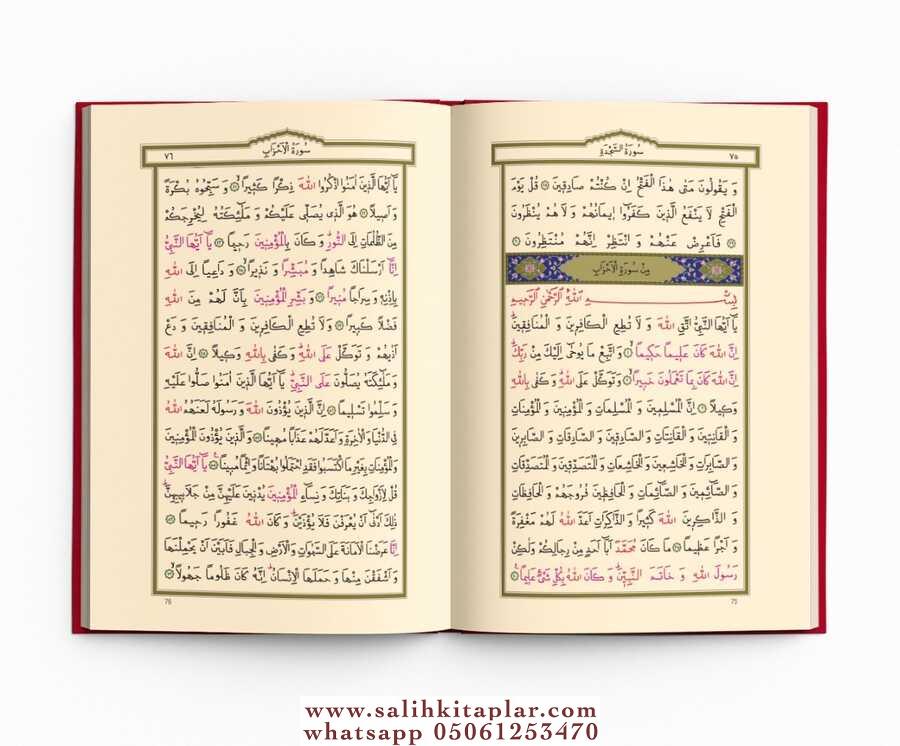 سُورَةُ السَّجْدَةِ ٧٥
وَ يَقُولُونَ مَتٰى هٰذَا الْفَتْحُ اِنْ كُنْتُمْ صَادِقِينَ ﴿٢٨﴾ قُلْ يَوْمَ
الْفَتْحِ لَا يَنْفَعُ الَّذِينَ كَفَرُوا اِيمَانُهُمْ وَ لَا هُمْ يُنْظَرُونَ
﴿٢٩﴾ فَاَعْرِضْ عَنْهُمْ وَ انْتَظِرْ اِنَّهُمْ مُنْتَظِرُونَ ﴿٣٠﴾
مِنْ سُورَةِ الْاَحْزَابِ
بِسْمِ اللّٰهِ الرَّحْمٰنِ الرَّحِيمِ
يَٓا اَيُّهَا النَّبِيُّ اتَّقِ اللّٰهَ وَ لَا تُطِعِ الْكَافِرِينَ وَ الْمُنَافِقِينَ
اِنَّ اللّٰهَ كَانَ عَلِيمًا حَكِيمًا ﴿١﴾ وَ اتَّبِعْ مَا يُوحٰٓى اِلَيْكَ مِنْ رَبِّكَ
اِنَّ اللّٰهَ كَانَ بِمَا تَعْمَلُونَ خَبِيرًا ﴿٢﴾ وَ تَوَكَّلْ عَلَى اللّٰهِ وَ كَفٰى بِاللّٰهِ
وَكِيلًا ﴿٣﴾ اِنَّ الْمُسْلِمِينَ وَ الْمُسْلِمَاتِ وَ الْمُؤْمِنِينَ وَ الْمُؤْمِنَاتِ
وَ الْقَانِتِينَ وَ الْقَانِتَاتِ وَ الصَّادِقِينَ وَ الصَّادِقَاتِ وَ الصَّابِرِينَ
وَ الصَّابِرَاتِ وَ الْخَاشِعِينَ وَ الْخَاشِعَاتِ وَ الْمُتَصَدِّقِينَ وَ الْمُتَصَدِّقَاتِ
وَ الصَّٓائِمِينَ وَ الصَّٓائِمَاتِ وَ الْحَافِظِينَ فُرُوجَهُمْ وَ الْحَافِظَاتِ
وَ الذَّاكِرِينَ اللّٰهَ كَثِيرًا وَ الذَّاكِرَاتِ اَعَدَّ اللّٰهُ لَهُمْ مَغْفِرَةً
وَ اَجْرًا عَظِيمًا ﴿٣٥﴾ مَا كَانَ مُحَمَّدٌ اَبَٓا اَحَدٍ مِنْ رِجَالِكُمْ وَلٰكِنْ
رَسُولَ اللّٰهِ وَ خَاتَمَ النَّبِيِّنَ وَ كَانَ اللّٰهُ بِكُلِّ شَيْءٍ عَلِيمًا ﴿٤٠﴾
75
سُورَةُ الْاَحْزَابِ ٧٦
يَٓا اَيُّهَا الَّذِينَ اٰمَنُوا اذْكُرُوا اللّٰهَ ذِكْرًا كَثِيرًا ﴿٤١﴾ وَ سَبِّحُوهُ بُكْرَةً
وَ اَصِيلًا ﴿٤٢﴾ هُوَ الَّذِي يُصَلِّي عَلَيْكُمْ وَ مَلٰٓئِكَتُهُ لِيُخْرِجَكُمْ
مِنَ الظُّلُمَاتِ اِلَى النُّورِ وَ كَانَ بِالْمُؤْمِنِينَ رَحِيمًا ﴿٤٣﴾ يَٓا اَيُّهَا النَّبِيُّ
اِنَّٓا اَرْسَلْنَاكَ شَاهِدًا وَ مُبَشِّرًا وَ نَذِيرًا ﴿٤٥﴾ وَ دَاعِيًا اِلَى اللّٰهِ
بِاِذْنِهِ وَ سِرَاجًا مُنِيرًا ﴿٤٦﴾ وَ بَشِّرِ الْمُؤْمِنِينَ بِاَنَّ لَهُمْ مِنَ اللّٰهِ
فَضْلًا كَبِيرًا ﴿٤٧﴾ وَ لَا تُطِعِ الْكَافِرِينَ وَ الْمُنَافِقِينَ وَ دَعْ
اَذٰيهُمْ وَ تَوَكَّلْ عَلَى اللّٰهِ وَ كَفٰى بِاللّٰهِ وَكِيلًا ﴿٤٨﴾ اِنَّ اللّٰهَ
وَ مَلٰٓئِكَتَهُ يُصَلُّونَ عَلَى النَّبِيِّ يَٓا اَيُّهَا الَّذِينَ اٰمَنُوا صَلُّوا عَلَيْهِ
وَ سَلِّمُوا تَسْلِيمًا ﴿٥٦﴾ اِنَّ الَّذِينَ يُؤْذُونَ اللّٰهَ وَ رَسُولَهُ لَعَنَهُمُ اللّٰهُ
فِي الدُّنْيَا وَ الْاٰخِرَةِ وَ اَعَدَّ لَهُمْ عَذَابًا مُهِينًا ﴿٥٧﴾ وَ الَّذِينَ يُؤْذُونَ الْمُؤْمِنِينَ
وَ الْمُؤْمِنَاتِ بِغَيْرِ مَا اكْتَسَبُوا فَقَدِ احْتَمَلُوا بُهْتَانًا وَ اِثْمًا مُبِينًا ﴿٥٨﴾ يَٓا اَيُّهَا النَّبِيُّ
قُلْ لِاَزْوَاجِكَ وَ بَنَاتِكَ وَ نِسَٓاءِ الْمُؤْمِنِينَ يُدْنِينَ عَلَيْهِنَّ مِنْ جَلَابِيبِهِنَّ
ذٰلِكَ اَدْنٰٓى اَنْ يُعْرَفْنَ فَلَا يُؤْذَيْنَ وَ كَانَ اللّٰهُ غَفُورًا رَحِيمًا ﴿٥٩﴾
اِنَّا عَرَضْنَا الْاَمَانَةَ عَلَى السَّمٰوَاتِ وَ الْاَرْضِ وَ الْجِبَالِ فَاَبَيْنَ اَنْ يَحْمِلْنَهَا
وَ اَشْفَقْنَ مِنْهَا وَ حَمَلَهَا الْاِنْسَانُ اِنَّهُ كَانَ ظَلُومًا جَهُولًا ﴿٧٢﴾
76
www.salihkitaplar.com
whatsapp 05061253470